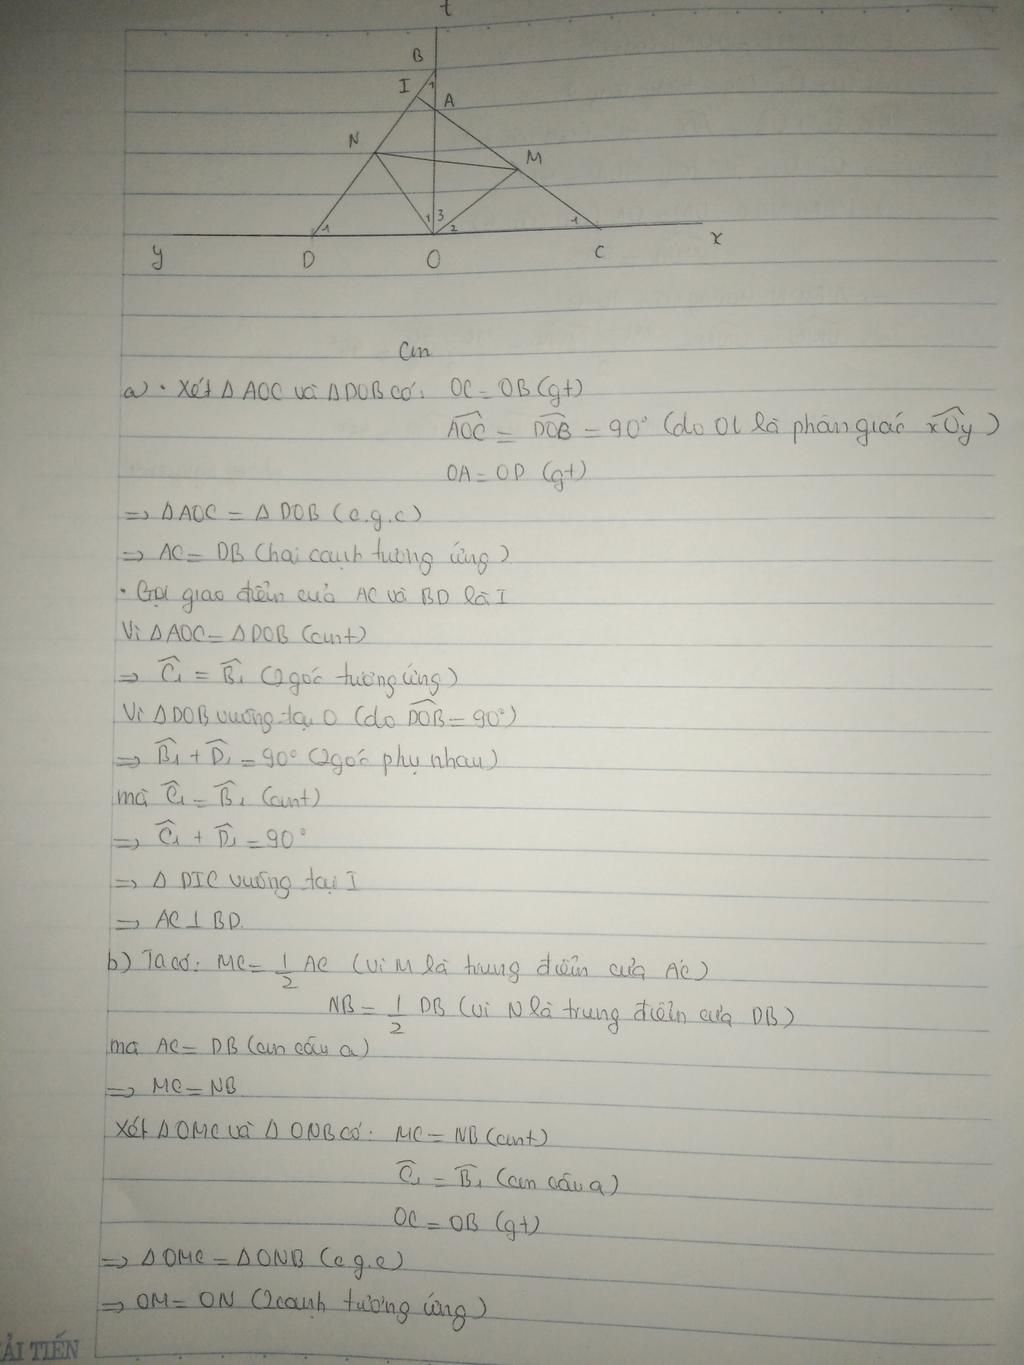 t
B
I 1 A
N
M
1 1 3 2 1
y D O C x
Cm
a) • Xét Δ AOC và Δ DOB có: OC = OB (gt)
$\widehat{AOC}$ = $\widehat{DOB}$ = 90° (do Ot là phân giác $\widehat{xOy}$)
OA = OD (gt)
=> Δ AOC = Δ DOB (c.g.c)
=> AC = DB (hai cạnh tương ứng)
• Gọi giao điểm của AC và BD là I
Vì Δ AOC = Δ DOB (cmt)
=> $\widehat{C_1}$ = $\widehat{B_1}$ (2 góc tương ứng)
Vì Δ DOB vuông tại O (do $\widehat{DOB}$ = 90°)
=> $\widehat{B_1}$ + $\widehat{D_1}$ = 90° (2 góc phụ nhau)
mà $\widehat{C_1}$ = $\widehat{B_1}$ (cmt)
=> $\widehat{C_1}$ + $\widehat{D_1}$ = 90°
=> Δ DIC vuông tại I
=> AC ⊥ BD.
b) Ta có: MC = $\frac{1}{2}$ AC (vì M là trung điểm của AC)
NB = $\frac{1}{2}$ DB (vì N là trung điểm của DB)
mà AC = DB (cm câu a)
=> MC = NB
Xét Δ OMC và Δ ONB có: MC = NB (cmt)
$\widehat{C_1}$ = $\widehat{B_1}$ (cm câu a)
OC = OB (gt)
=> Δ OMC = Δ ONB (c.g.c)
=> OM = ON (2 cạnh tương ứng)
ẢI TIẾN